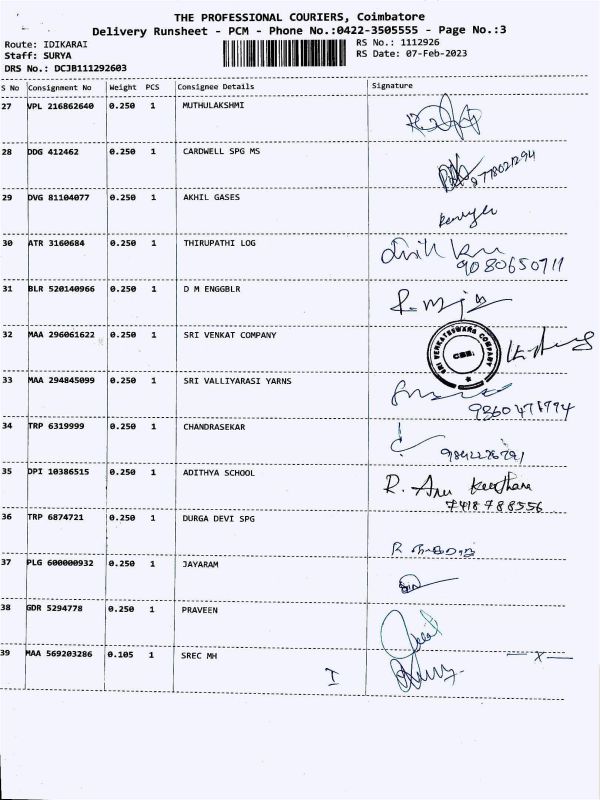 THE PROFESSIONAL COURIERS, Coimbatore
Delivery Runsheet - PCM - Phone No.:0422-3505555 - Page No.:3
Route: IDIKARAI RS No.: 1112926
Staff: SURYA RS Date: 07-Feb-2023
DRS No.: DCJB111292603
S No Consignment No Weight PCS Consignee Details Signature
27 VPL 216862640 0.250 1 MUTHULAKSHMI
28 DDG 412462 0.250 1 CARDWELL SPG MS
29 DVG 81104077 0.250 1 AKHIL GASES
30 ATR 3160684 0.250 1 THIRUPATHI LOG
9080650711
31 BLR 520140966 0.250 1 D M ENGGBLR
32 MAA 296061622 0.250 1 SRI VENKAT COMPANY
SRI VENKATESWARA COMPANY
CBE.
33 MAA 294845099 0.250 1 SRI VALLIYARASI YARNS
34 TRP 6319999 0.250 1 CHANDRASEKAR
35 DPI 10386515 0.250 1 ADITHYA SCHOOL
R. Anu Keerthana
7418788556
36 TRP 6874721 0.250 1 DURGA DEVI SPG
37 PLG 600000932 0.250 1 JAYARAM
38 GDR 5294778 0.250 1 PRAVEEN
39 MAA 569203286 0.105 1 SREC MH
I
— x —